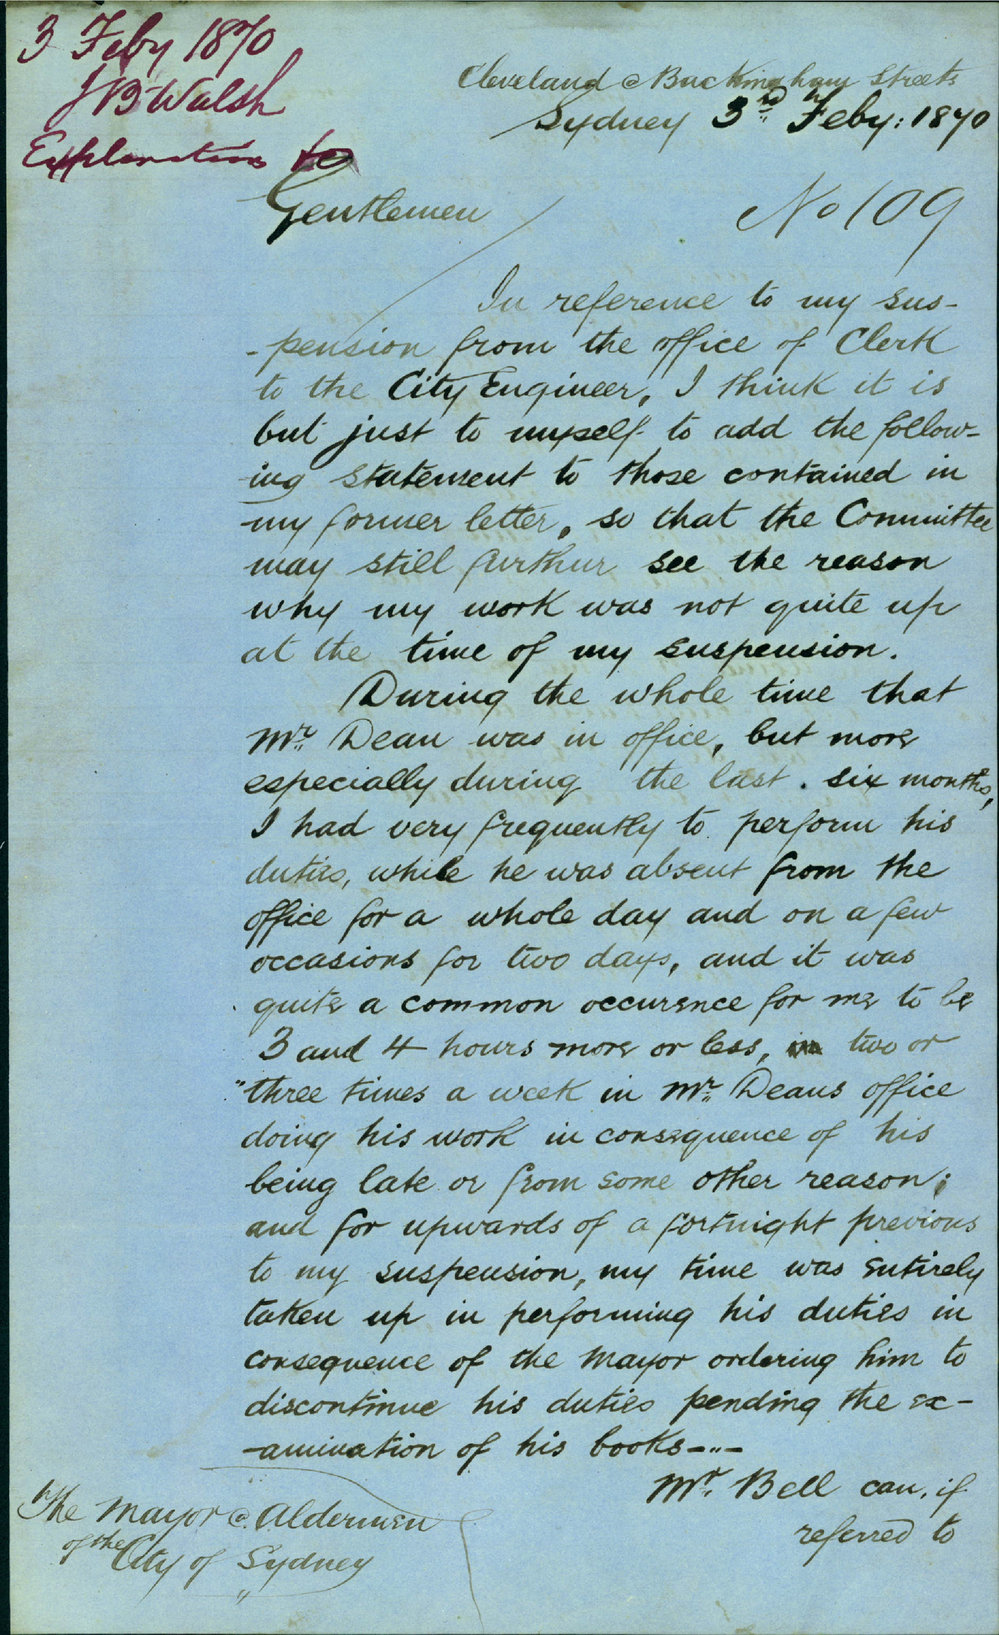 3 Feby 1870
J B Walsh
Explanation to
Cleveland & Buckingham Streets
Sydney 3rd Feby: 1870
Gentlemen
No 109
In reference to my sus-
-pension from the office of Clerk
to the City Engineer, I think it is
but just to myself to add the follow-
ing statement to those contained in
my former letter, so that the Committee
may still furthur see the reason
why my work was not quite up
at the time of my suspension.
During the whole time that
Mr. Dean was in office, but more
especially during the last . six months,
I had very frequently to perform his
duties, while he was absent from the
office for a whole day and on a few
occasions for two days, and it was
quite a common occurence for me to be
3 and 4 hours more or less, in two or
three times a week in Mr. Deans office
doing his work in consequence of his
being late or from some other reason;
and for upwards of a fortnight previous
to my suspension, my time was entirely
taken up in performing his duties in
consequence of the Mayor ordering him to
discontinue his duties pending the ex-
-amination of his books-..-
Mr. Bell can, if
referred to
The Mayor & Aldermen
of the City of Sydney